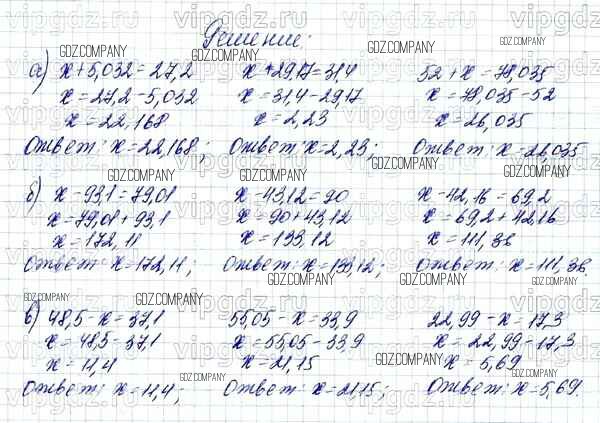 Решение:
а) x + 5,032 = 27,2
x = 27,2 - 5,032
x = 22,168
Ответ: x = 22,168;
x + 29,17 = 31,4
x = 31,4 - 29,17
x = 2,23
Ответ: x = 2,23;
52 + x = 78,035
x = 78,035 - 52
x = 26,035
Ответ: x = 26,035
б) x - 93,1 = 79,01
x = 79,01 + 93,1
x = 172,11
Ответ: x = 172,11;
x - 43,12 = 90
x = 90 + 43,12
x = 133,12
Ответ: x = 133,12;
x - 42,16 = 69,2
x = 69,2 + 42,16
x = 111,36
Ответ: x = 111,36.
в) 48,5 - x = 37,1
x = 48,5 - 37,1
x = 11,4
Ответ: x = 11,4;
55,05 - x = 33,9
x = 55,05 - 33,9
x = 21,15
Ответ: x = 21,15;
22,99 - x = 17,3
x = 22,99 - 17,3
x = 5,69
Ответ: x = 5,69.
GDZ.COMPANY
vipgdz.ru